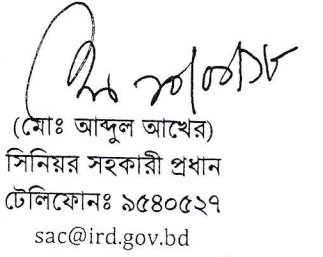 (মোঃ আব্দুল আখের)
সিনিয়র সহকারী প্রধান
টেলিফোনঃ ৯৫৪০৫২৭
sac@ird.gov.bd